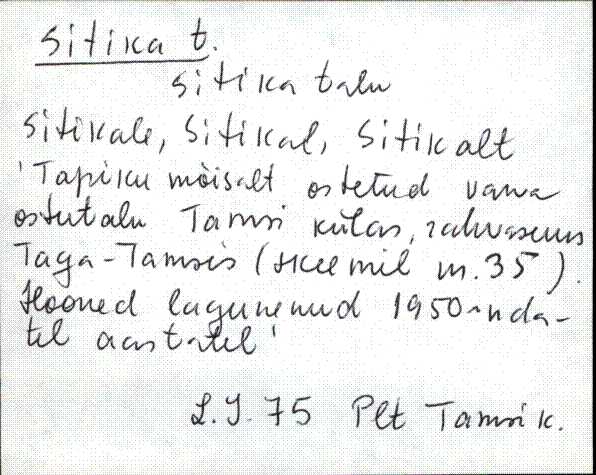 Sitika t.
Sitika talu
Sitikale, Sitikal, Sitikalt
'Tapiku mõisalt ostetud vana
ostutalu Tamsi külas, rahvasuus
Taga-Tamsis (skeemil nr. 35).
Hooned lagunenud 1950-nda-
tel aastatel'
L.J. 75 Plt Tamsi k.